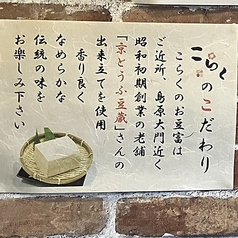 こらくのこだわり
こらくのお豆富は
ご近所、島原大門近く
昭和初期創業の老舗
「京とうふ豆蔵」さんの
出来立てを使用
香り良く
なめらかな
伝統の味を
お楽しみ下さい